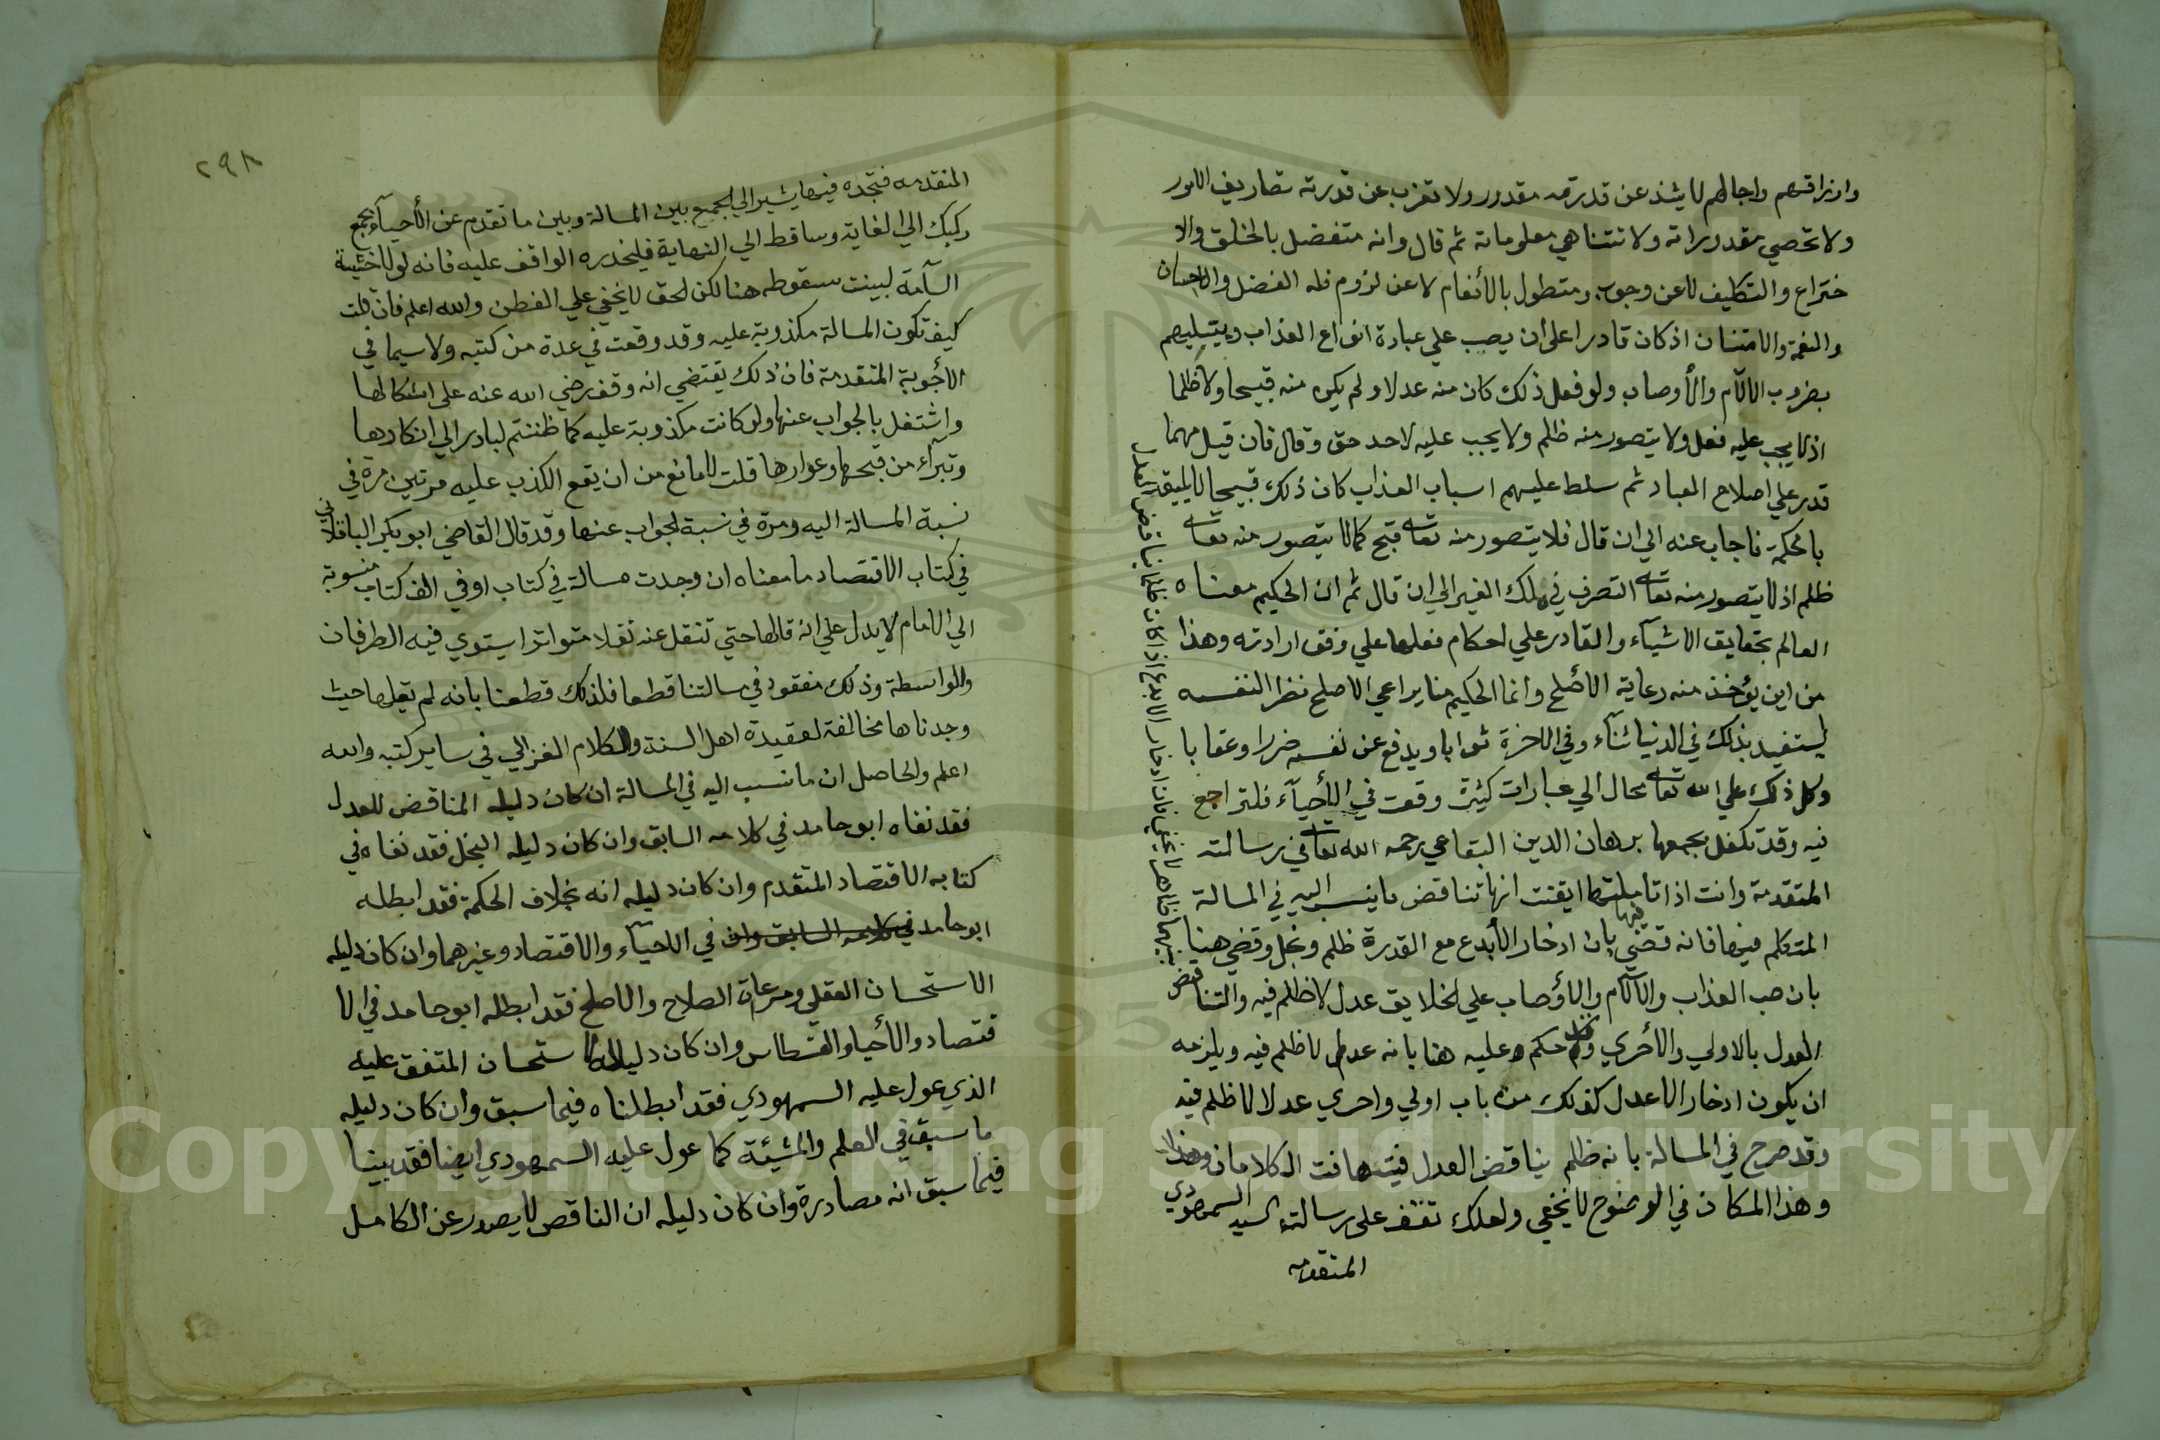 وارزاقهم واجالهم لا يشذ عن قدرته مقدور ولا تعزب عن قدرته تصاريف الامور
ولا تحصي مقدوراته ولا تتناهي معلوماته ثم قال وانه متفضل بالخلق والا
ختراع والتكليف لا عن وجوب ومتطول بالأنعام لا عن لزوم فله الفضل والاحسان
والنعمة والامتنان اذ كان قادرا على أن يصب علي عباده انواع العذاب ويبتليهم
بضروب الالآم والأوصاب ولو فعل ذلك كان منه عدلا ولم يكن منه قبيحا ولا ظلما
اذ لا يجب عليه فعل ولا يتصور منه ظلم ولا يجب عليه لاحد حق وقال فان قيل مهما
قدر علي اصلاح العباد ثم سلط عليهم اسباب العذاب كان ذلك قبيحا لا يليق
بالحكمة فاجاب عنه الي ان قال فلا يتصور منه تعالى قبح كما لا يتصور منه تعالى
ظلم اذ لا يتصور منه تعالى التصرف في ملك الغير الي ان قال ثم ان الحكيم معناه
العالم بحقايق الاشيآء والقادر علي احكام فعلها علي وفق ارادته وهذا
من اين يؤخذ منه رعاية الأصلح وانما الحكيم منا يراعي الاصلح نظرا لنفسه
ليستفيد بذلك في الدنيا ثنآء وفي الاخرة ثوابا ويدفع عن نفسه ضررا وعقابا
وكل ذلك علي الله تعالى محال الي عبارات كثيرة وقعت في الأحيآء فلتراجع
فيه وقد تكفل بجمعها برهان الدين البقاعي رحمه الله تعالى في رسالته
المتقدمة وانت اذا تاملتها ايقنت انها تناقض ما ينسب اليه في المسالة
المتكلم فيها فانه قضي فيها بان ادخار الأبدع مع القدرة ظلم وبخل وقضي هنا
بان صب العذاب والآلآم والأوصاب علي الخلايق عدل لا ظلم فيه
العدل بالاولي والأحري حكم عليه هنا بانه عدل لا ظلم فيه ويلزمه
ان يكون ادخار الاعدل كذلك من باب اولي واحري عدلا لا ظلم فيه
وقد صرح في المسالة بانه ظلم يناقض العدل فيتهافت الكلامان
وهذا المكان في الوضوح لا يخفي ولعلك تقف على رسالة السيد السمهودي
المتقدمه
٢٩٨
المتقدمه فتجده فيها يشير الي الجمع بين المسالة وبين ما تقدم عن الأحيآء بجمع
ركيك الي الغاية وساقط الي النهاية فليحذره الواقف عليه فانه لولا خشية
السآمة لبينت سقوطه هنا لكن الحق لا يخفي علي الفطن والله اعلم فان قلت
كيف تكون المسالة مكذوبة عليه وقد وقعت في عدة من كتبه ولا سيما في
الأجوبة المتقدمة فان ذلك يقتضي انه وقف رضي الله عنه على اشكالها
واشتغل بالجواب عنها ولو كانت مكذوبة عليه كما ظننتم لبادر الي انكارها
وتبرآء من قبحها وعوارها قلت لا مانع من ان يقع الكذب عليه مرتين مرة في
نسبة المسالة اليه ومرة في نسبة الجواب عنها وقد قال القاضي ابو بكر الباقلاني
في كتاب الاقتصاد ما معناه ان وجدت مسالة في كتاب او في الف كتاب منسوبة
الي الامام لا يدل علي انه قالها حتي تنقل عنه نقلا متواترا يستوي فيه الطرفان
والواسطة وذلك مفقود في مسالتنا قطعا فلذلك قطعنا بانه لم يقلها حيث
وجدناها مخالفة لعقيدة اهل السنة ولكلام الغزالي في ساير كتبه والله
اعلم والحاصل ان ما نسب اليه في المسالة ان كان دليله المناقض للعدل
فقد نفاه ابو حامد في كلامه السابق وان كان دليله البخل فقد نفاه في
كتابه الاقتصاد المتقدم وان كان دليله انه بخلاف الحكمة فقد ابطله
ابو حامد في كلامه السابق وان في الاحيآء والاقتصاد وغيرهما وان كان دليله
الاستحسان العقلي ومرعاة الصلاح والاصلح فقد ابطله ابو حامد في الا
قتصاد والأحيا والقسطاس وان كان دليله الاستحسان المتفق عليه
الذي عول عليه السمهودي فقد ابطلناه فيما سبق وان كان دليله
ما سبق في العلم والمشيئة كما عول عليه السمهودي ايضا فقد بينا
فيما سبق انه مصادرة وان كان دليله ان الناقص لا يصدر عن الكامل
Copyright © King Saud University